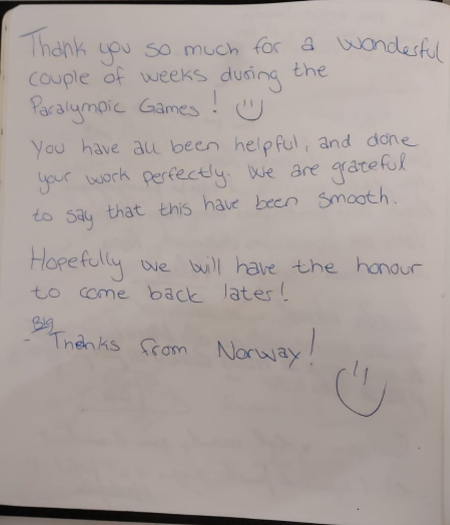 Thank you so much for a wonderful
couple of weeks during the
Paralympic Games!
You have all been helpful, and done
your work perfectly. We are grateful
to say that this have been smooth.
Hopefully we will have the honour
to come back later!
Big
- Thanks from Norway!